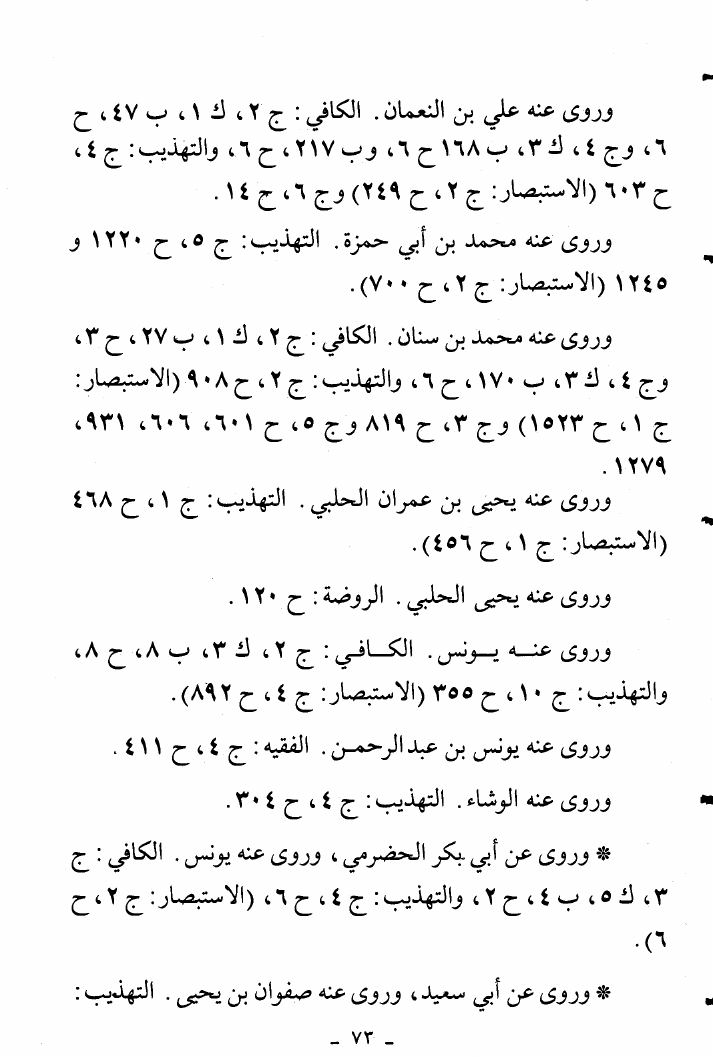 وروى عنه علي بن النعمان. الكافي: ج ٢، ك ١، ب ٤٧، ح
٦، وج ٤، ك ٣، ب ١٦٨ ح ٦، وب ٢١٧، ح ٦، والتهذيب: ج ٤،
ح ٦٠٣ (الاستبصار: ج ٢، ح ٢٤٩) وج ٦، ح ١٤.
وروى عنه محمد بن أبي حمزة. التهذيب: ج ٥، ح ١٢٢٠ و
١٢٤٥ (الاستبصار: ج ٢، ح ٧٠٠).
وروى عنه محمد بن سنان. الكافي: ج ٢، ك ١، ب ٢٧، ح ٣،
وج ٤، ك ٣، ب ١٧٠، ح ٦، والتهذيب: ج ٢، ح ٩٠٨ (الاستبصار:
ج ١، ح ١٥٢٣) وج ٣، ح ٨١٩ وج ٥، ح ٦٠١، ٦٠٦، ٩٣١،
١٢٧٩.
وروى عنه يحيى بن عمران الحلبي. التهذيب: ج ١، ح ٤٦٨
(الاستبصار: ج ١، ح ٤٥٦).
وروى عنه يحيى الحلبي. الروضة: ح ١٢٠.
وروى عنــه يــونس. الكــافـي: ج ٢، ك ٣، ب ٨، ح ٨،
والتهذيب: ج ١٠، ح ٣٥٥ (الاستبصار: ج ٤، ح ٨٩٢).
وروى عنه يونس بن عبدالرحمـن. الفقيه: ج ٤، ح ٤١١.
وروى عنه الوشاء. التهذيب: ج ٤، ح ٣٠٤.
* وروى عن أبي بكر الحضرمي، وروى عنه يونس. الكافي: ج
٣، ك ٥، ب ٤، ح ٢، والتهذيب: ج ٤، ح ٦، (الاستبصار: ج ٢، ح
٦).
* وروى عن أبي سعيد، وروى عنه صفوان بن يحيى. التهذيب:
- ٧٣ -